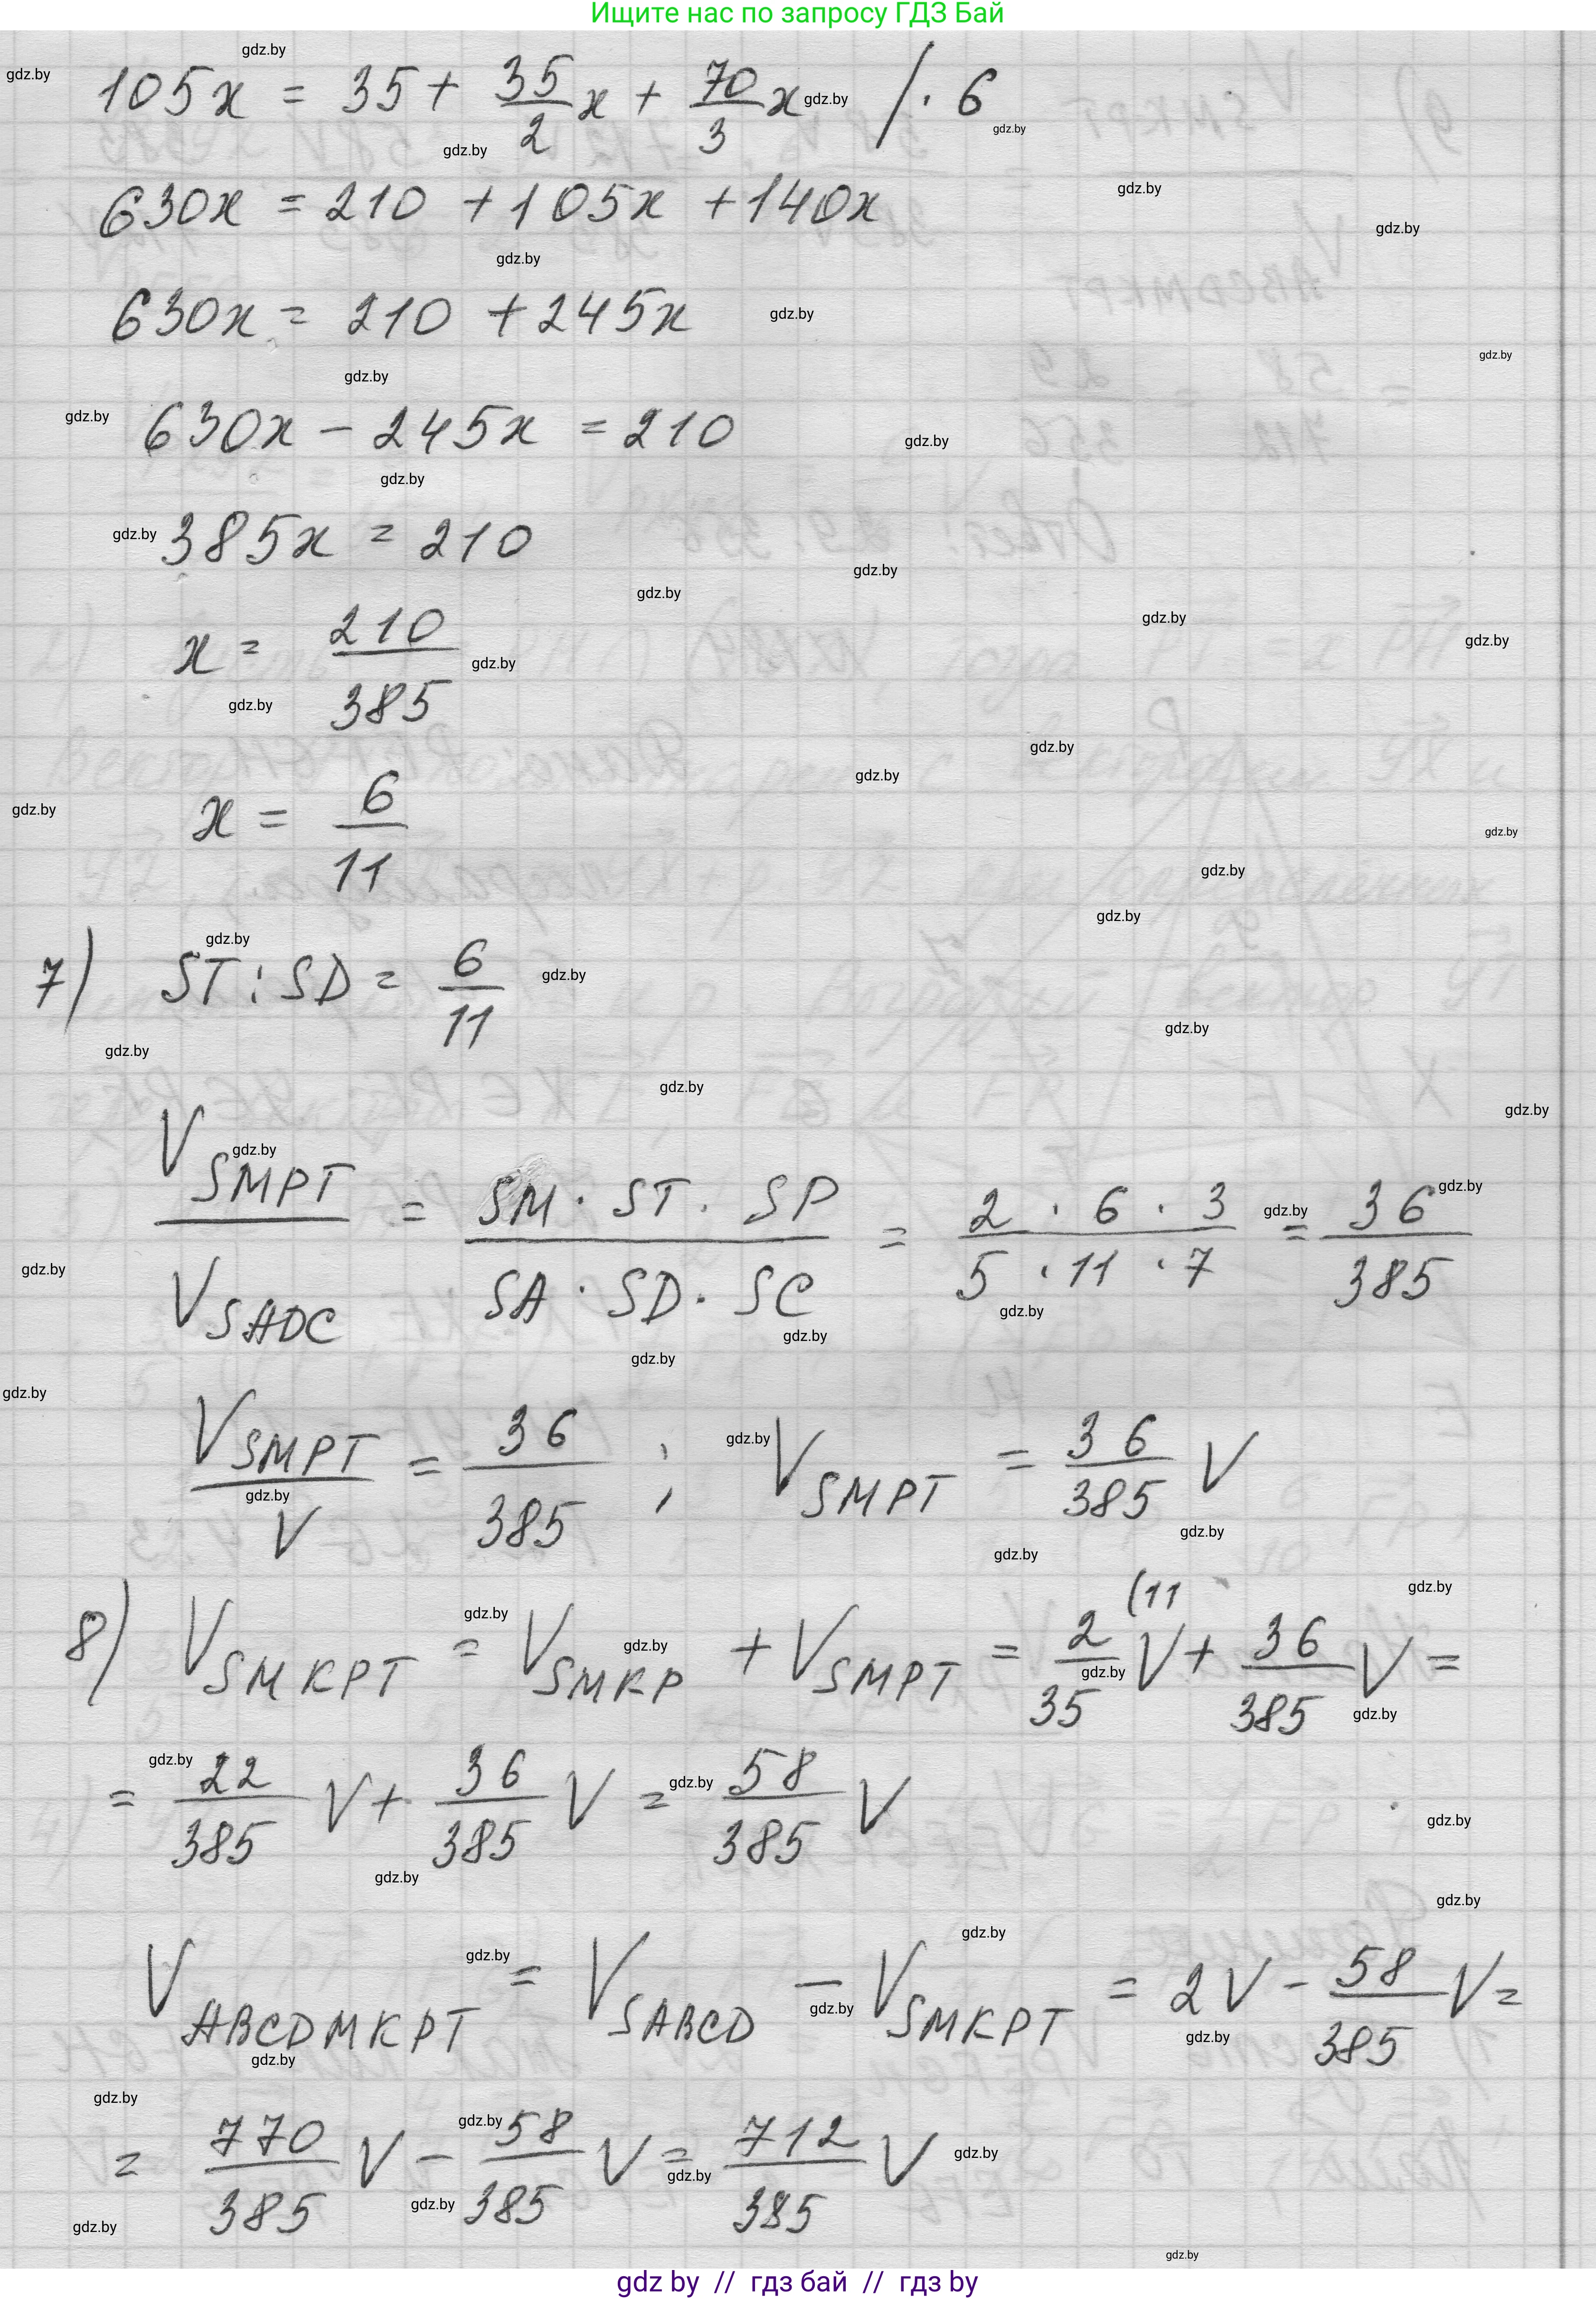 Ищите нас по запросу ГДЗ Бай
105x = 35 + 35/2 x + 70/3 x / · 6
630x = 210 + 105x + 140x
630x = 210 + 245x
630x − 245x = 210
385x = 210
x = 210/385
x = 6/11
7) ST : SD = 6/11
V SMPT / V SADC = SM · ST · SP / SA · SD · SC = 2 · 6 · 3 / 5 · 11 · 7 = 36/385
V SMPT / V = 36/385 ; V SMPT = 36/385 V
8) V SMKPT = V SMKP + V SMPT = 2/35 (11 V + 36/385 V =
= 22/385 V + 36/385 V = 58/385 V
V ABCDMKPT = V SABCD − V SMKPT = 2V − 58/385 V =
= 770/385 V − 58/385 V = 712/385 V
gdz by // гдз бай // гдз by